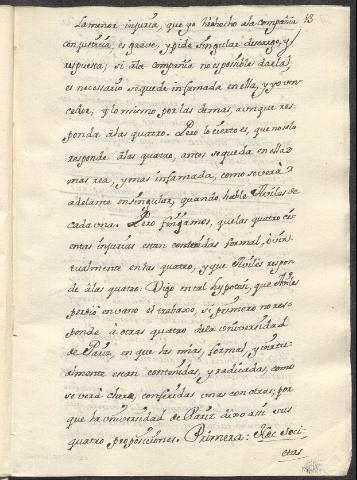 13
La menor injuria, que yo he hecho a la compañia
con justicia, es grave, y pide singular descargo, y
respuesta; si a la compañia no es posible darla,
es necesario se quede infamada en ella, y yo ven-
cedor; y lo mismo por las demas, aunque res-
ponda a las quatro. Pero lo cierto es, que no solo
responde a las quatro, antes se queda en ellas
mas rea, y mas infamada, como se verà
adelante en singular, quando hable Aviles de
cada una. Pero finjamos, que las quatro ci-
entas injurias estan contenidas formal, ò vir-
tualmente en las quatro, y que Avilés respon-
de à las quatro. Digo en tal hypotesi, que Aviles
perdió en vano el trabaxo, si primero no res-
ponde à otras quatro de la Universidad
de Pariz, en que las mias, formal, y virtu-
almente estan contenidas, y radicadas, como
se verá claro, conferidas unas con otras; por
que la Universidad de Pariz dixo assi sus
quatro proposiciones. Primera: Hæc Soci-
etas